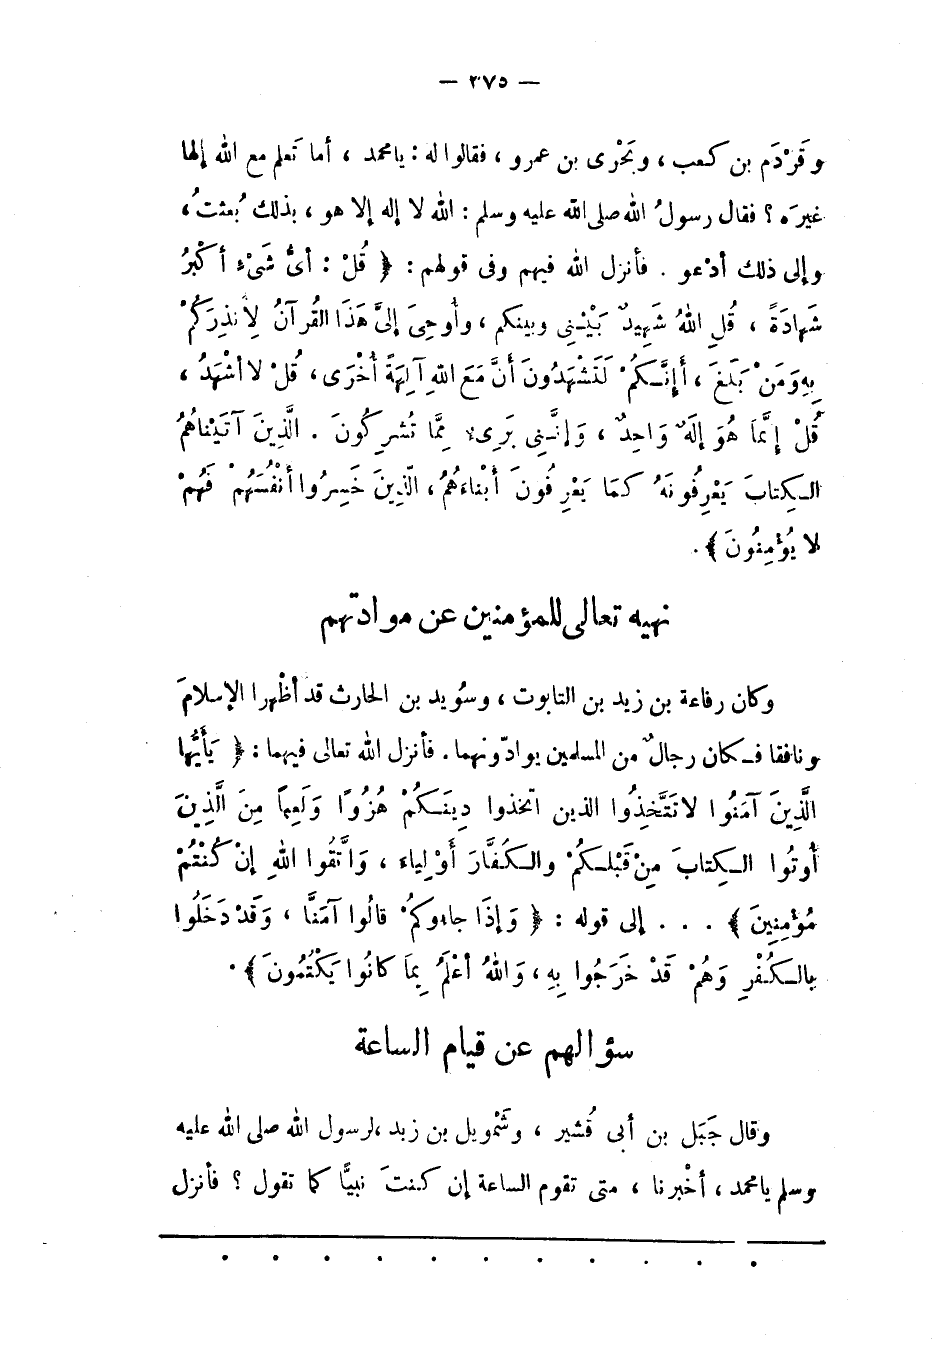 — ٣٧٥ —
وقَرْدَم بن كعب، وبَحْرى بن عمرو، فقالوا له: يا محمد، أما تَعلم مع الله إلها
غيرَه؟ فقال رسولُ الله صلى الله عليه وسلم: الله لا إله إلا هو، بذلك بُعثتُ،
وإلى ذلك أدْعو. فأنزل الله فيهم وفى قولهم: ﴿قُلْ: أىُّ شَىْءٍ أكْبَرُ
شَهادَةً، قُلِ اللهُ شَهِيدٌ بَيْنِى وبينكم، وأُوحِىَ إلىَّ هَذَا القُرآنُ لِأُنذِرَكُمْ
بِهِ وَمَنْ بَلَغَ، أإنَّكُمْ لَتَشْهَدُونَ أنَّ مَعَ اللهِ آلِهَةً أُخْرَى، قُلْ لا أشْهَدُ،
قُلْ إنَّمَا هُوَ إلَهٌ وَاحِدٌ، وَإنَّنِى بَرِىءٌ مِمَّا تُشرِكُونَ. الَّذِينَ آتَيْناهُمُ
الكِتابَ يَعْرِفُونَهُ كمَا يَعْرِفُونَ أبْناءهُمُ، الّذِينَ خَسِرُوا أنْفُسَهُمْ فَهُمْ
لا يُؤْمِنُونَ﴾.
نهيه تعالى للمؤمنين عن موادتهم
وكان رفاعة بن زيد بن التابوت، وسُويد بن الحارث قد أظْهرا الإسلامَ
ونافقا فكان رجالٌ من المسلمين يوادّونهما. فأنزل الله تعالى فيهما: ﴿يَأَيُّها
الَّذِينَ آمَنُوا لا تَتَّخِذُوا الذين اتخذوا دِينَكُمْ هُزُوًا وَلَعِبًا مِنَ الَّذِينَ
أُوتُوا الكِتابَ مِنْ قَبْلكُمْ والكُفَّارَ أوْلِياء، وَاتَّقُوا اللهَ إنْ كُنْتُمْ
مُؤْمِنِينَ﴾ . . . إلى قوله: ﴿وَإذَا جاءوكمُ قالُوا آمَنَّا، وَقَدْ دَخَلُوا
بالكُفْرِ وَهُمْ قَدْ خَرَجُوا بِهِ، وَاللهُ أعْلَمُ بِمَا كانُوا يَكْتُمُونَ﴾.
سؤالهم عن قيام الساعة
وقال جَبَل بن أبى قُشير، وشَمْويل بن زيد، لرسول الله صلى الله عليه
وسلم يا محمد، أخْبرنا، متى تقوم الساعة إن كنتَ نبيًّا كما تقول؟ فأنزل
. . . . . . . . . . .